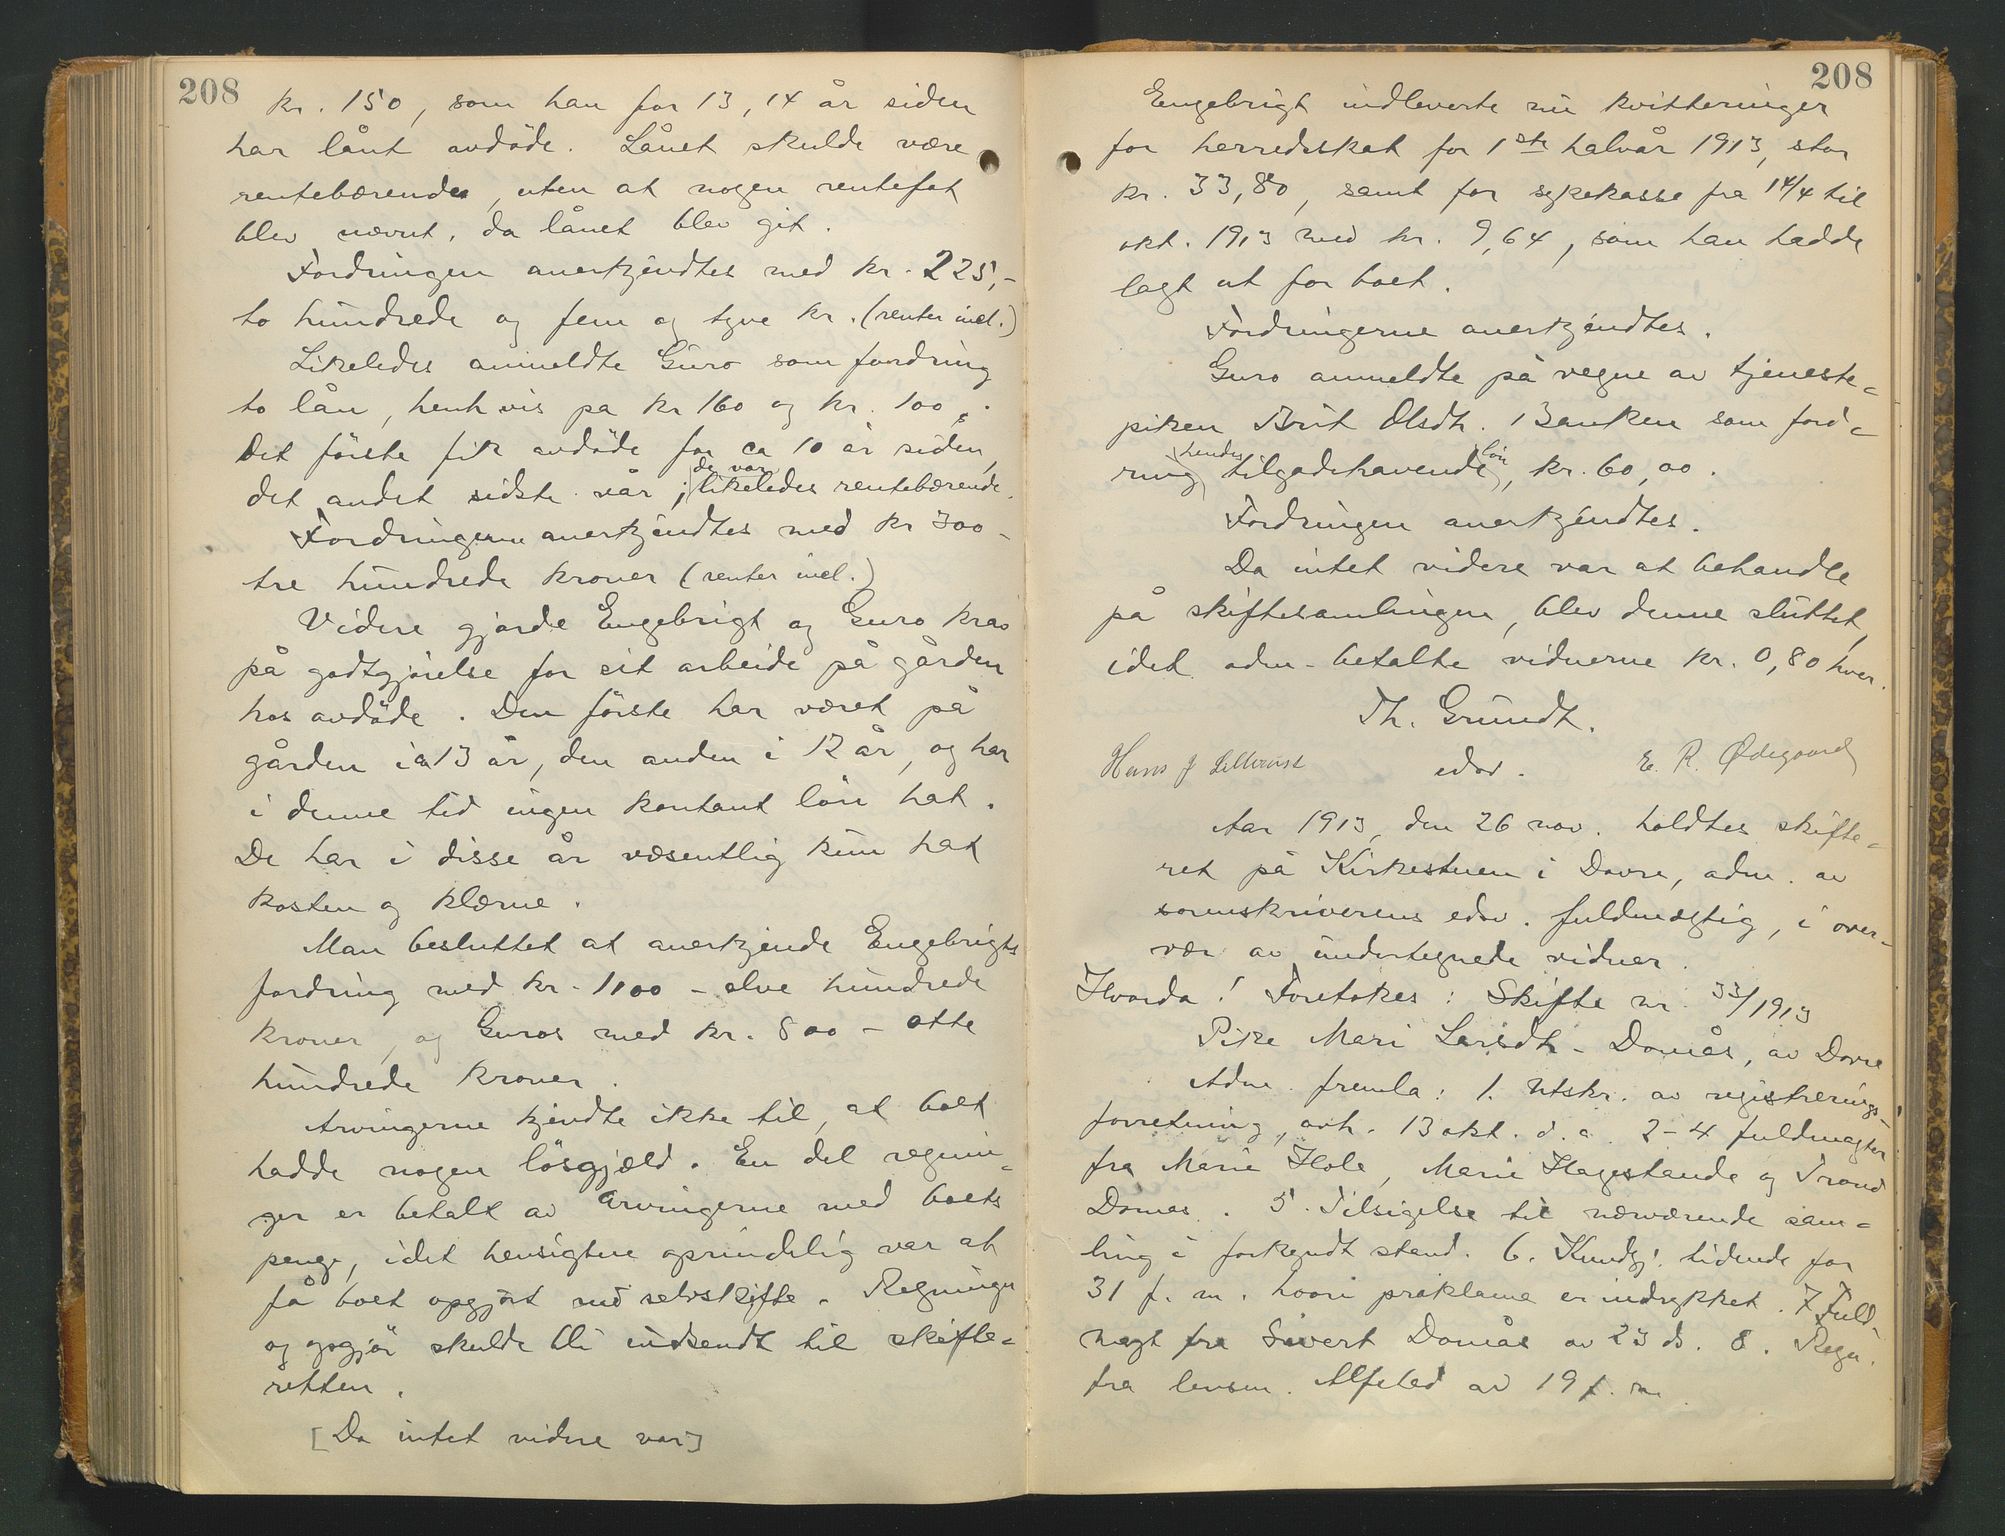 208
kr. 150, som han for 13, 14 år siden
har lånt avdöde. Lånet skulde være
rentebærende, uten at nogen rentefot
blev nævnt, da lånet blev git.
Fordringen anerkjendtes med kr. 225,-
to hundrede og fem og tyve kr. (renter incl.)
Likeledes anmeldte Guro som fordring
to lån, henh vis på kr 160 og kr. 100,-.
Det förste fik avdöde for ca 10 år siden,
det andet sidste vår; de var likeledes rentebærende.
Fordringerne anerkjendtes med kr 300-
tre hundrede kroner (renter incl.)
Videre gjorde Engebrigt og Guro krav
på godtgjörelse for sit arbeide på gården
hos avdöde. Den förste har været på
gården i 13 år, den anden i 12 år, og har
i denne tid ingen kontant lön hat.
De har i disse år væsentlig kun hat
kosten og klærne.
Man besluttet at anerkjende Engebrigts
fordring med kr. 1100 - elve hundrede
kroner, og Guros med kr. 800 - otte
hundrede kroner.
Arvingerne kjendte ikke til, at boet
hadde nogen lösgjæld. En del regnin-
ger er betalt av arvingerne med boets
penge, idet hensigten oprindelig var at
få boet opgjort ved selvskifte. Regninger
og opgjör skulde bli indsendt til skifte-
retten.
[Da intet videre var]
208
Engebrigt indleverte nu kvitteringer
for herredsskat for 1ste halvår 1913, stor
kr. 33,80, samt for sykekasse fra 14/4 til
okt. 1913 med kr. 9,64, som han hadde
lagt ut for boet.
Fordringerne anerkjendtes.
Guro anmeldte på vegne av tjeneste-
piken Brit Olsdtr. Banken som ford-
ring hendes tilgodehavende lön, kr. 60,00.
Fordringen anerkjendtes.
Da intet videre var at behandle
på skiftesamlingen, blev denne sluttet,
idet adm. betalte vidnerne kr. 0,80 hver.
Th. Grundt.
edsv.
Hans J Lillekvist E. R. Ødegaard
Aar 1913, den 26 nov. holdtes skifte-
ret på Kirkestuen i Dovre, adm. av
sorenskriverens edsv. fuldmægtig, i over-
vær av undertegnede vidner.
Hvorda! Foretokes: Skifte nr. 33/1913
Pike Mari Larsdtr. Domås, av Dovre
Adm. fremla: 1. Utskr. av registrerings-
forretning, avh. 13 okt. d. a. 2-4 fuldmagter
fra Marie Hole, Marie Hagestande og Trond
Domås. 5. Tilsigelse til nærværende sam-
ling i forkyndt stand. 6. Kundgj. tidende for
31 f. m. hvori proklama er indrykket. 7 Fuld-
magt fra Sivert Domås av 23 ds. 8. Regn.
fra lensm. Alfstad av 19 f. m.